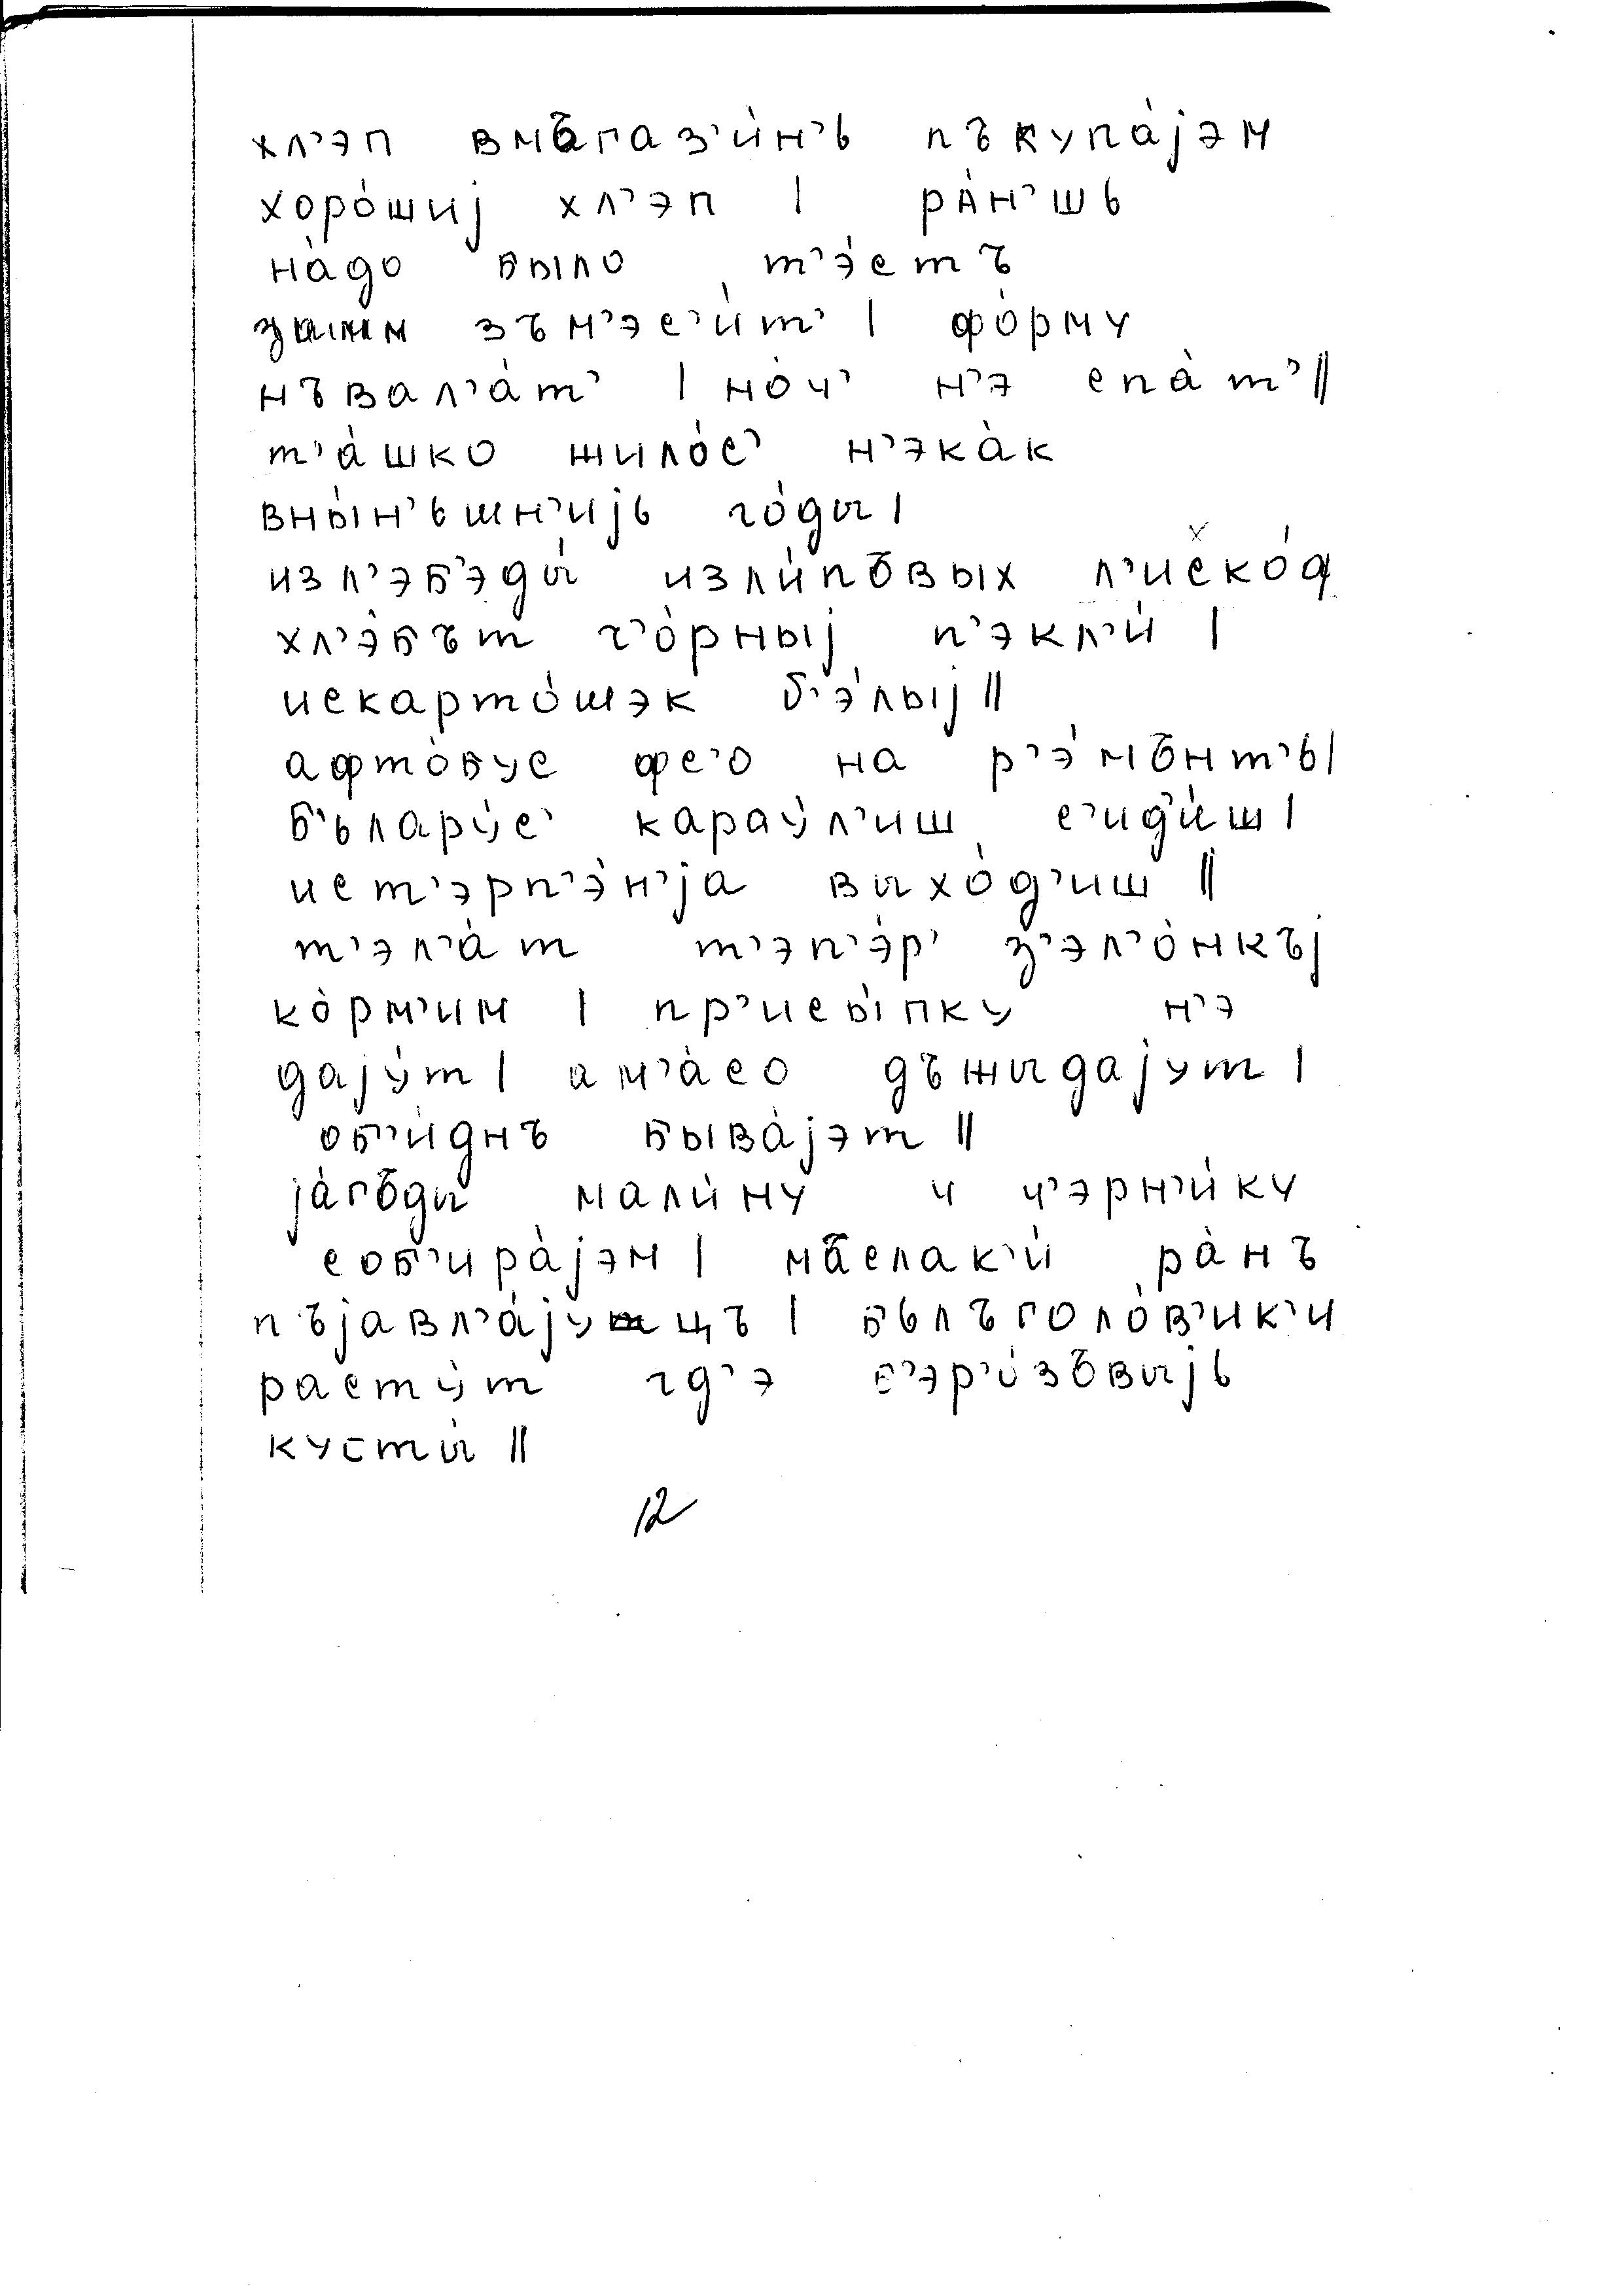 хл’эп вмъгаз’и́н’ь пъкупа́јэм
хоро́шиј хл’эп | ра́н’шь
на́до было т’э́стъ
зъм’эс’и́т’ | фо́рму
нъвал’а́т’ | но́ч’ н’э спа́т’ ||
т’а́шко жило́с’ н’эка́к
вны́н’ьшн’ијь го́ды |
изл’эб’эды́ изли́пъвых л’иско́ф
хл’э́бът ч’о́рныј п’экл’и́ |
искарто́шэк б’э́лыј ||
афто́бус фс’о на р’э́мънт’ь |
б’ьлару́с’ карау́л’иш с’ид’и́ш |
ист’эрп’э́н’ја выхо́д’иш ||
т’эл’а́т т’эп’э́р’ з’эл’о́нкъј
ко́рм’им | пр’исы́пку н’э
дају́т | ам’а́со дъжыдајут |
об’и́днъ быва́јэт ||
ја́гъды мали́ну и ч’эрн’и́ку
соб’ира́јэм | мъслак’и́ ра́нъ
пъјавл’а́јуцъ | бьлъголо́в’ик’и
расту́т гд’э б’эр’о́зъвыјь
кусты́ ||
12